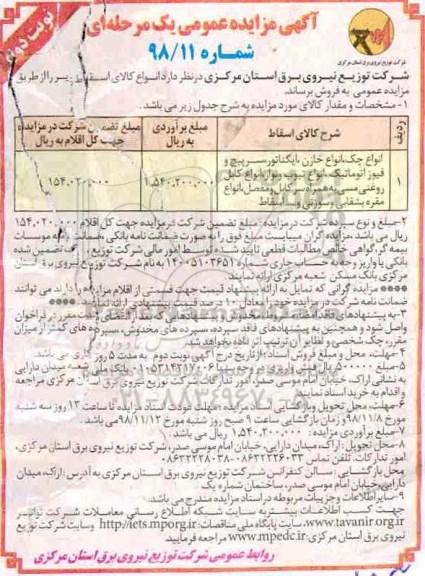 نوبت دوم
آگهی مزایده عمومی یک مرحله‌ای
شماره ۹۸/۱۱
شرکت توزیع نیروی برق استان مرکزی
شرکت توزیع نیروی برق استان مرکزی درنظر دارد انواع کالای اسقاط زیر را از طریق
مزایده عمومی به فروش برساند.
۱- مشخصات و مقدار کالای مورد مزایده به شرح جدول زیر می باشد.
ردیف
شرح کالای اسقاط
مبلغ برآوردی به ریال
مبلغ تضمین شرکت در مزایده جهت کل اقلام به ریال
۱
انواع جک،انواع خازن ،ایگناتور،سرپیچ و
فیوز اتوماتیک،انواع تیوپ ونوار،انواع کابل
روغنی مسی به همراه سرکابل ومفصل،انواع
مقره بشقابی وسوزنی و... اسقاط
۱,۵۴۰,۲۰۰,۰۰۰
۱۵۴,۰۲۰,۰۰۰
۲-مبلغ و نوع سپرده شرکت در مزایده: مبلغ تضمین شرکت در مزایده جهت کل اقلام ۱۵۴,۰۲۰,۰۰۰
ریال می باشد .مزایده گران میبایست مبلغ فوق را به صورت ضمانت نامه بانکی، ضمانت نامه موسسات
بیمه گر،گواهی خالص مطالبات قطعی تایید شده توسط امور مالی شرکت توزیع، چک تضمین شده
بانکی یا واریز وجه به حساب جاری شماره ۱۴۰۰۵۱۰۳۶۵۱ به نام شرکت توزیع نیروی برق استان
مرکزی بانک مسکن شعبه مرکزی ارائه نمایند.
**** مزایده گرانی که تمایل به ارائه پیشنهاد قیمت جهت قسمتی از اقلام مزایده را دارند می توانند
ضمانت نامه شرکت در مزایده خود را معادل ۱۰ درصد قیمت پیشنهادی ارائه نمایند. ****
۳-به پیشنهادهای فاقد امضاء، مشروط، مخدوش و پیشنهادهایی که بعد از انقضاء مدت مقرر در فراخوان
واصل شود و همچنین به پیشنهادهای فاقد سپرده، سپرده های مخدوش، سپرده های کمتر از میزان
مقرر، چک شخصی و نظایر آن ترتیب اثر داده نخواهد شد.
۴-مهلت، محل و مبلغ فروش اسناد: از تاریخ درج آگهی نوبت دوم به مدت ۵ روز کاری می باشد.
۵-مبلغ ۵۰۰۰۰۰ ریال فیش واریزی در وجه سیبا ۰۱۰۵۳۱۴۲۱۷۰۰۶ بانک ملی شعبه میدان دارایی
به نشانی اراک، خیابان امام موسی صدر، امور تدارکات شرکت توزیع نیروی برق استان مرکزی مراجعه
و اقدام به خرید اسناد نمایند.
۶-مهلت، محل تحویل و بازگشایی اسناد مزایده: مهلت عودت اسناد مزایده تا ساعت ۱۳ روز سه شنبه
مورخ ۹۸/۱۱/۸ و زمان بازگشایی ساعت ۹ صبح روز شنبه مورخ ۹۸/۱۱/۱۲ می باشد.
۷-مبلغ برآوردی مزایده: ۱,۵۴۰,۲۰۰,۰۰۰ ریال می باشد.
۸-محل تحویل: اراک، میدان دارایی، خیابان امام موسی صدر، شرکت توزیع نیروی برق استان مرکزی،
امور تدارکات. تلفن تماس
محل بازگشایی: سالن کنفرانس شرکت توزیع نیروی برق استان مرکزی به آدرس: اراک، میدان
دارایی، خیابان امام موسی صدر، ساختمان شماره یک
۹-سایر اطلاعات و جزییات مربوطه در اسناد مزایده مندرج می باشد.
جهت کسب اطلاعات بیشتر به سایت شبکه اطلاع رسانی معاملات شرکت توانیر
www.tavanir.org.ir، سایت پایگاه ملی مناقصات: http://iets.mporg.ir وسایت شرکت توزیع
نیروی برق استان مرکزی: www.mpedc.ir مراجعه فرمایید.
روابط عمومی شرکت توزیع نیروی برق استان مرکزی